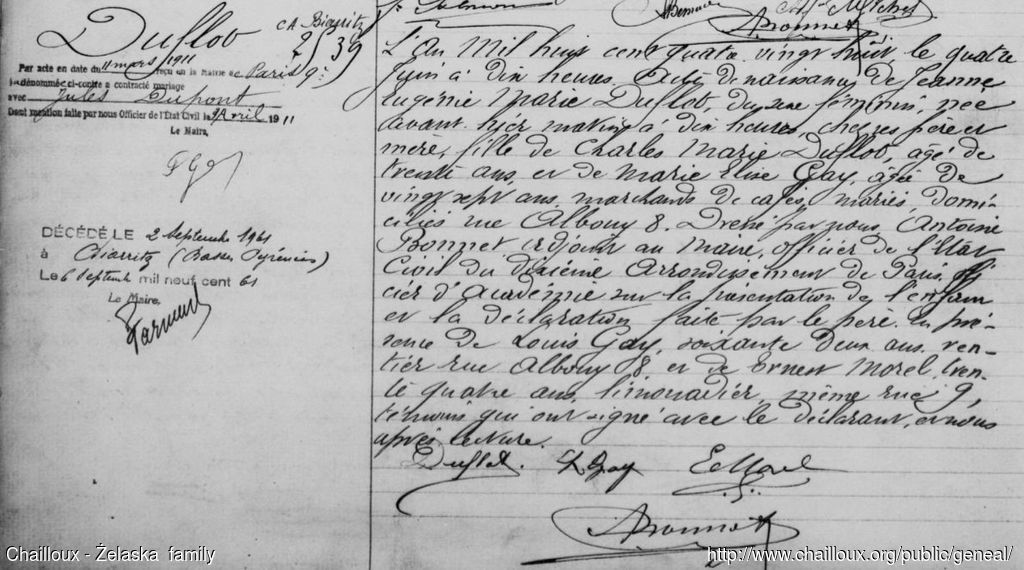 Duflob
CA Biarritz
2539
Par acte en date du 11 mars 1911 reçu en la Mairie de Paris 9e
le dénommé ci-contre a contracté mariage
avec Jules Dupont
Dont mention faite par nous Officier de l'Etat Civil le avril 1911
Le Maire,
DÉCÉDÉ LE 2 Septembre 1961
à Biarritz (Basses Pyrénées)
Le 6 Septembre mil neuf cent 61
Le Maire,
L'An Mil huit cent quatre vingt huit, le quatre
Juin à dix heures, Acte de naissance de Jeanne
Eugénie Marie Duflob, du sexe féminin, née
avant hier matin à dix heures, chez ses père et
mère, fille de Charles Marie Duflob, âgé de
trente ans et de Marie Elise Gay, âgée de
vingt sept ans, marchands de cafés, mariés, domi-
ciliés rue Albouy 8. Dressé par nous, Antoine
Bonnet, adjoint au Maire, officier de l'Etat
Civil du dixième Arrondissement de Paris, offi-
cier d'Académie sur la présentation de l'enfant
et la déclaration faite par le père en pré-
sence de Louis Gay, soixante deux ans, ren-
tier rue Albouy 8 et de Ernest Morel, tren-
te quatre ans, limonadier, même rue 9,
témoins qui ont signé avec le déclarant, et nous
après lecture.
Duflot. L Gay E Morel
ABonnet
Chailloux - Żelaska family
http://www.chailloux.org/public/geneal/